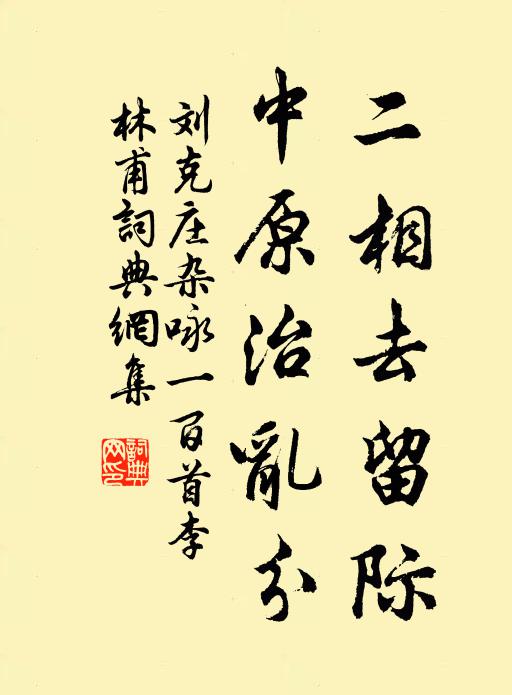 二相去留际
中原治亂分
刘克庄杂咏一百首李
林甫詞典網集
詞典
网印